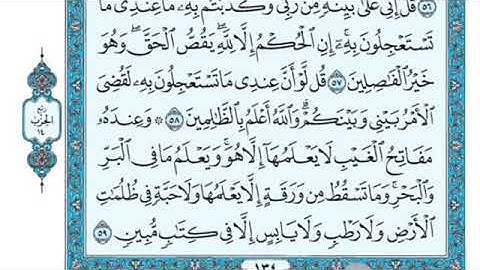 ٥٦ قُلْ إِنِّي عَلَىٰ بَيِّنَةٍ مِّن رَّبِّي وَكَذَّبْتُم بِهِ ۚ مَا عِندِي مَا
تَسْتَعْجِلُونَ بِهِ ۚ إِنِ الْحُكْمُ إِلَّا لِلَّهِ ۖ يَقُصُّ الْحَقَّ ۖ وَهُوَ
خَيْرُ الْفَاصِلِينَ ٥٧ قُل لَّوْ أَنَّ عِندِي مَا تَسْتَعْجِلُونَ بِهِ لَقُضِيَ
الْأَمْرُ بَيْنِي وَبَيْنَكُمْ ۗ وَاللَّهُ أَعْلَمُ بِالظَّالِمِينَ ٥٨ ۞ وَعِندَهُ
مَفَاتِحُ الْغَيْبِ لَا يَعْلَمُهَا إِلَّا هُوَ ۚ وَيَعْلَمُ مَا فِي الْبَرِّ
وَالْبَحْرِ ۚ وَمَا تَسْقُطُ مِن وَرَقَةٍ إِلَّا يَعْلَمُهَا وَلَا حَبَّةٍ فِي ظُلُمَٰتِ
الْأَرْضِ وَلَا رَطْبٍ وَلَا يَابِسٍ إِلَّا فِي كِتَٰبٍ مُّبِينٍ ٥٩
ربع
الحزب
١٤
١٣٤